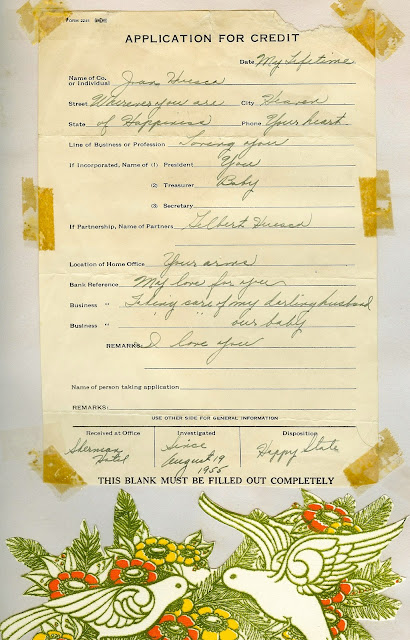 FORM 224
APPLICATION FOR CREDIT
Date My Lifetime
Name of Co. or Individual Joan Huesca
Street Wherever you are City Heaven
State of Happiness Phone Your heart
Line of Business or Profession Loving you
If Incorporated, Name of (1) President You
(2) Treasurer Baby
(3) Secretary
If Partnership, Name of Partners Gilbert Huesca
Location of Home Office Your arms
Bank Reference My love for you
Business " Taking care of my darling husband
Business " " " " our baby
REMARKS: I love you
Name of person taking application
REMARKS:
USE OTHER SIDE FOR GENERAL INFORMATION
Received at Office Investigated Disposition
Sherman Hotel Since August 19 1955 Happy State
THIS BLANK MUST BE FILLED OUT COMPLETELY